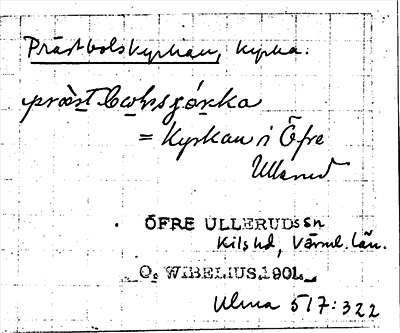 Prästbolskyrkan, kyrka.
präst bo̤lsçö́rka
= Kyrkan i Öfre
Ullerud
ÖFRE ULLERUDs sn
Kils hd, Värml. län.
O. WIBELIUS.1901.
Ulma 517:322